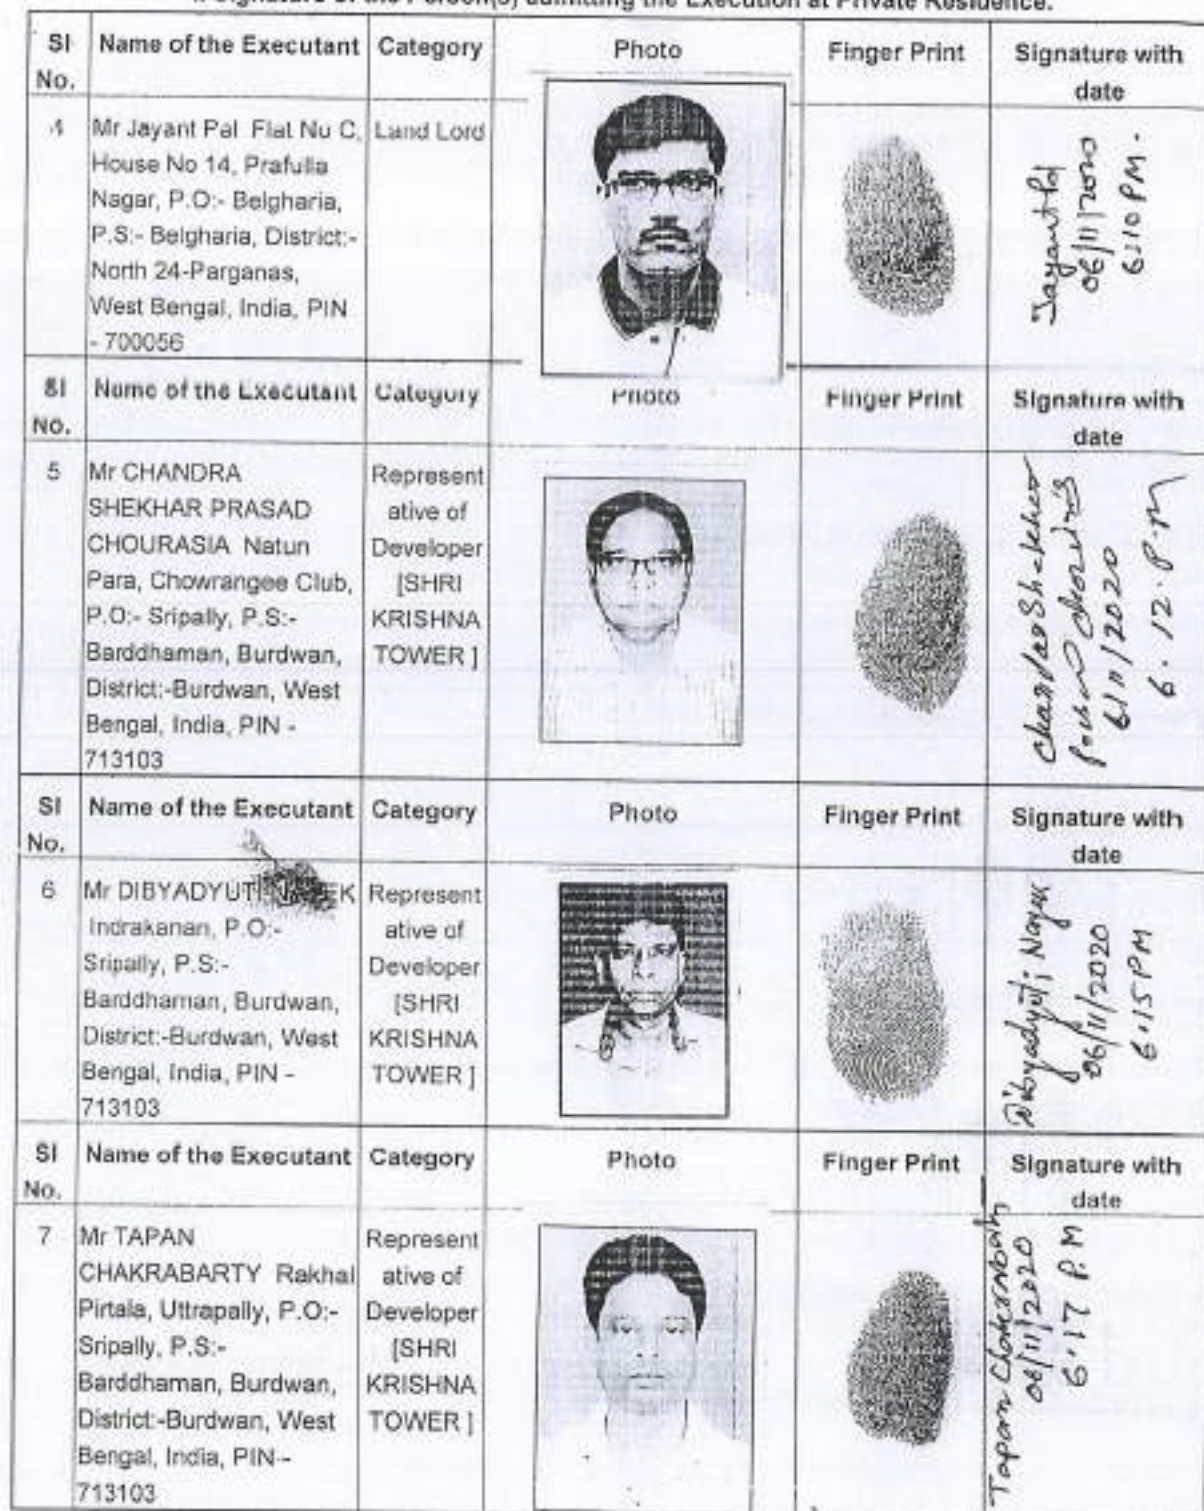 Signature of the Person(s) admitting the Execution at Private Residence.
Sl No. Name of the Executant Category Photo Finger Print Signature with date
4 Mr Jayant Pal Flat No C, Land Lord
House No 14, Prafulla
Nagar, P.O:- Belgharia,
P.S:- Belgharia, District:-
North 24-Parganas,
West Bengal, India, PIN
- 700056
Jayant Pal
06/11/2020
6:10 PM.
Sl No. Name of the Executant Category Photo Finger Print Signature with date
5 Mr CHANDRA
SHEKHAR PRASAD
CHOURASIA Natun
Para, Chowrangee Club,
P.O:- Sripally, P.S:-
Barddhaman, Burdwan,
District:-Burdwan, West
Bengal, India, PIN -
713103
Represent
ative of
Developer
[SHRI
KRISHNA
TOWER ]
6/11/2020
6.12.P.M
Sl No. Name of the Executant Category Photo Finger Print Signature with date
6 Mr DIBYADYUTI
Indrakanan, P.O:-
Sripally, P.S:-
Barddhaman, Burdwan,
District:-Burdwan, West
Bengal, India, PIN -
713103
Represent
ative of
Developer
[SHRI
KRISHNA
TOWER ]
Dibyadyuti
06/11/2020
6.15 PM
Sl No. Name of the Executant Category Photo Finger Print Signature with date
7 Mr TAPAN
CHAKRABARTY Rakhal
Pirtala, Uttrapally, P.O:-
Sripally, P.S:-
Barddhaman, Burdwan,
District:-Burdwan, West
Bengal, India, PIN--
713103
Represent
ative of
Developer
[SHRI
KRISHNA
TOWER ]
Tapan
06/11/2020
6.17 P.M